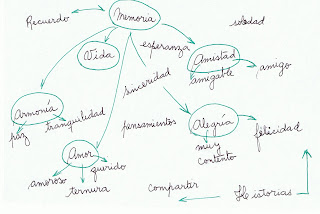 Recuerdo
Memoria
soledad
Vida
esperanza
Amistad
amigable
amigo
sinceridad
Armonía
paz
tranquilidad
pensamientos
Alegría
muy
contento
felicidad
Amor
amoroso
querido
ternura
compartir
Historias